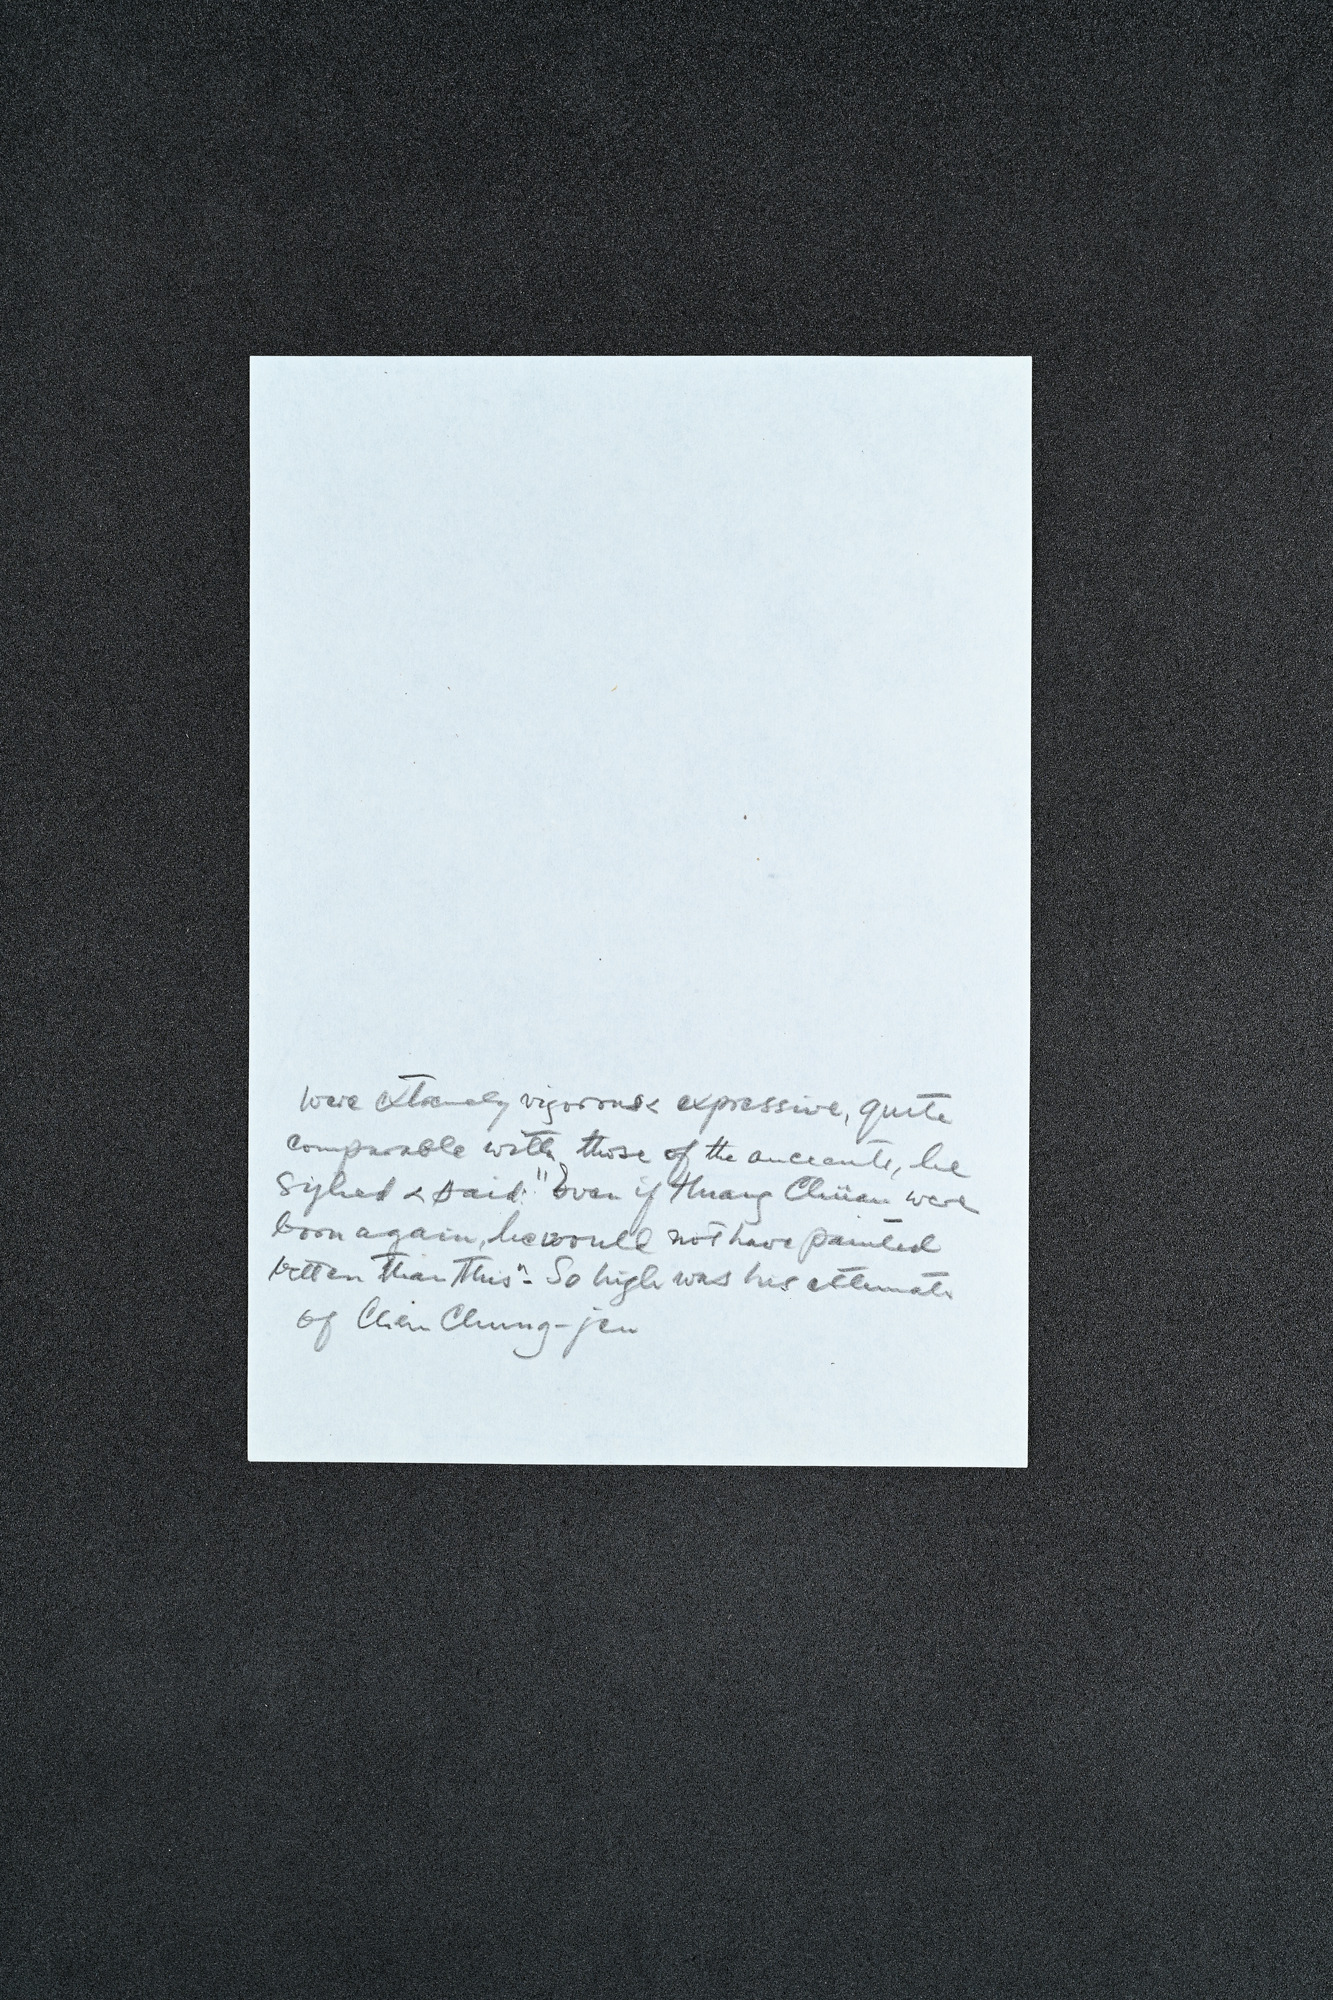 were extremely vigorous & expressive, quite
comparable with those of the ancients, he
sighed & said: "Even if Huang Chüan were
born again, he would not have painted
better than this". So high was his estimate
of Chien Chung-jen